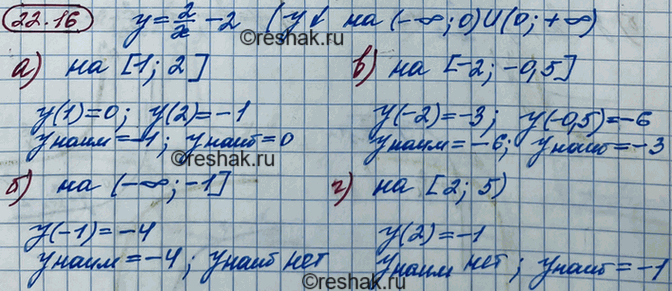 22.16 y = 2/x - 2 (y↓ на (-∞; 0) U (0; +∞)
а) на [1; 2]
y(1) = 0; y(2) = -1
yнаим = -1; yнаиб = 0
в) на [-2; -0,5]
y(-2) = -3; y(-0,5) = -6
yнаим = -6; yнаиб = -3
б) на (-∞; -1]
y(-1) = -4
yнаим = -4; yнаиб нет
г) на [2; 5)
y(2) = -1
yнаим нет; yнаиб = -1
©reshak.ru
©reshak.ru